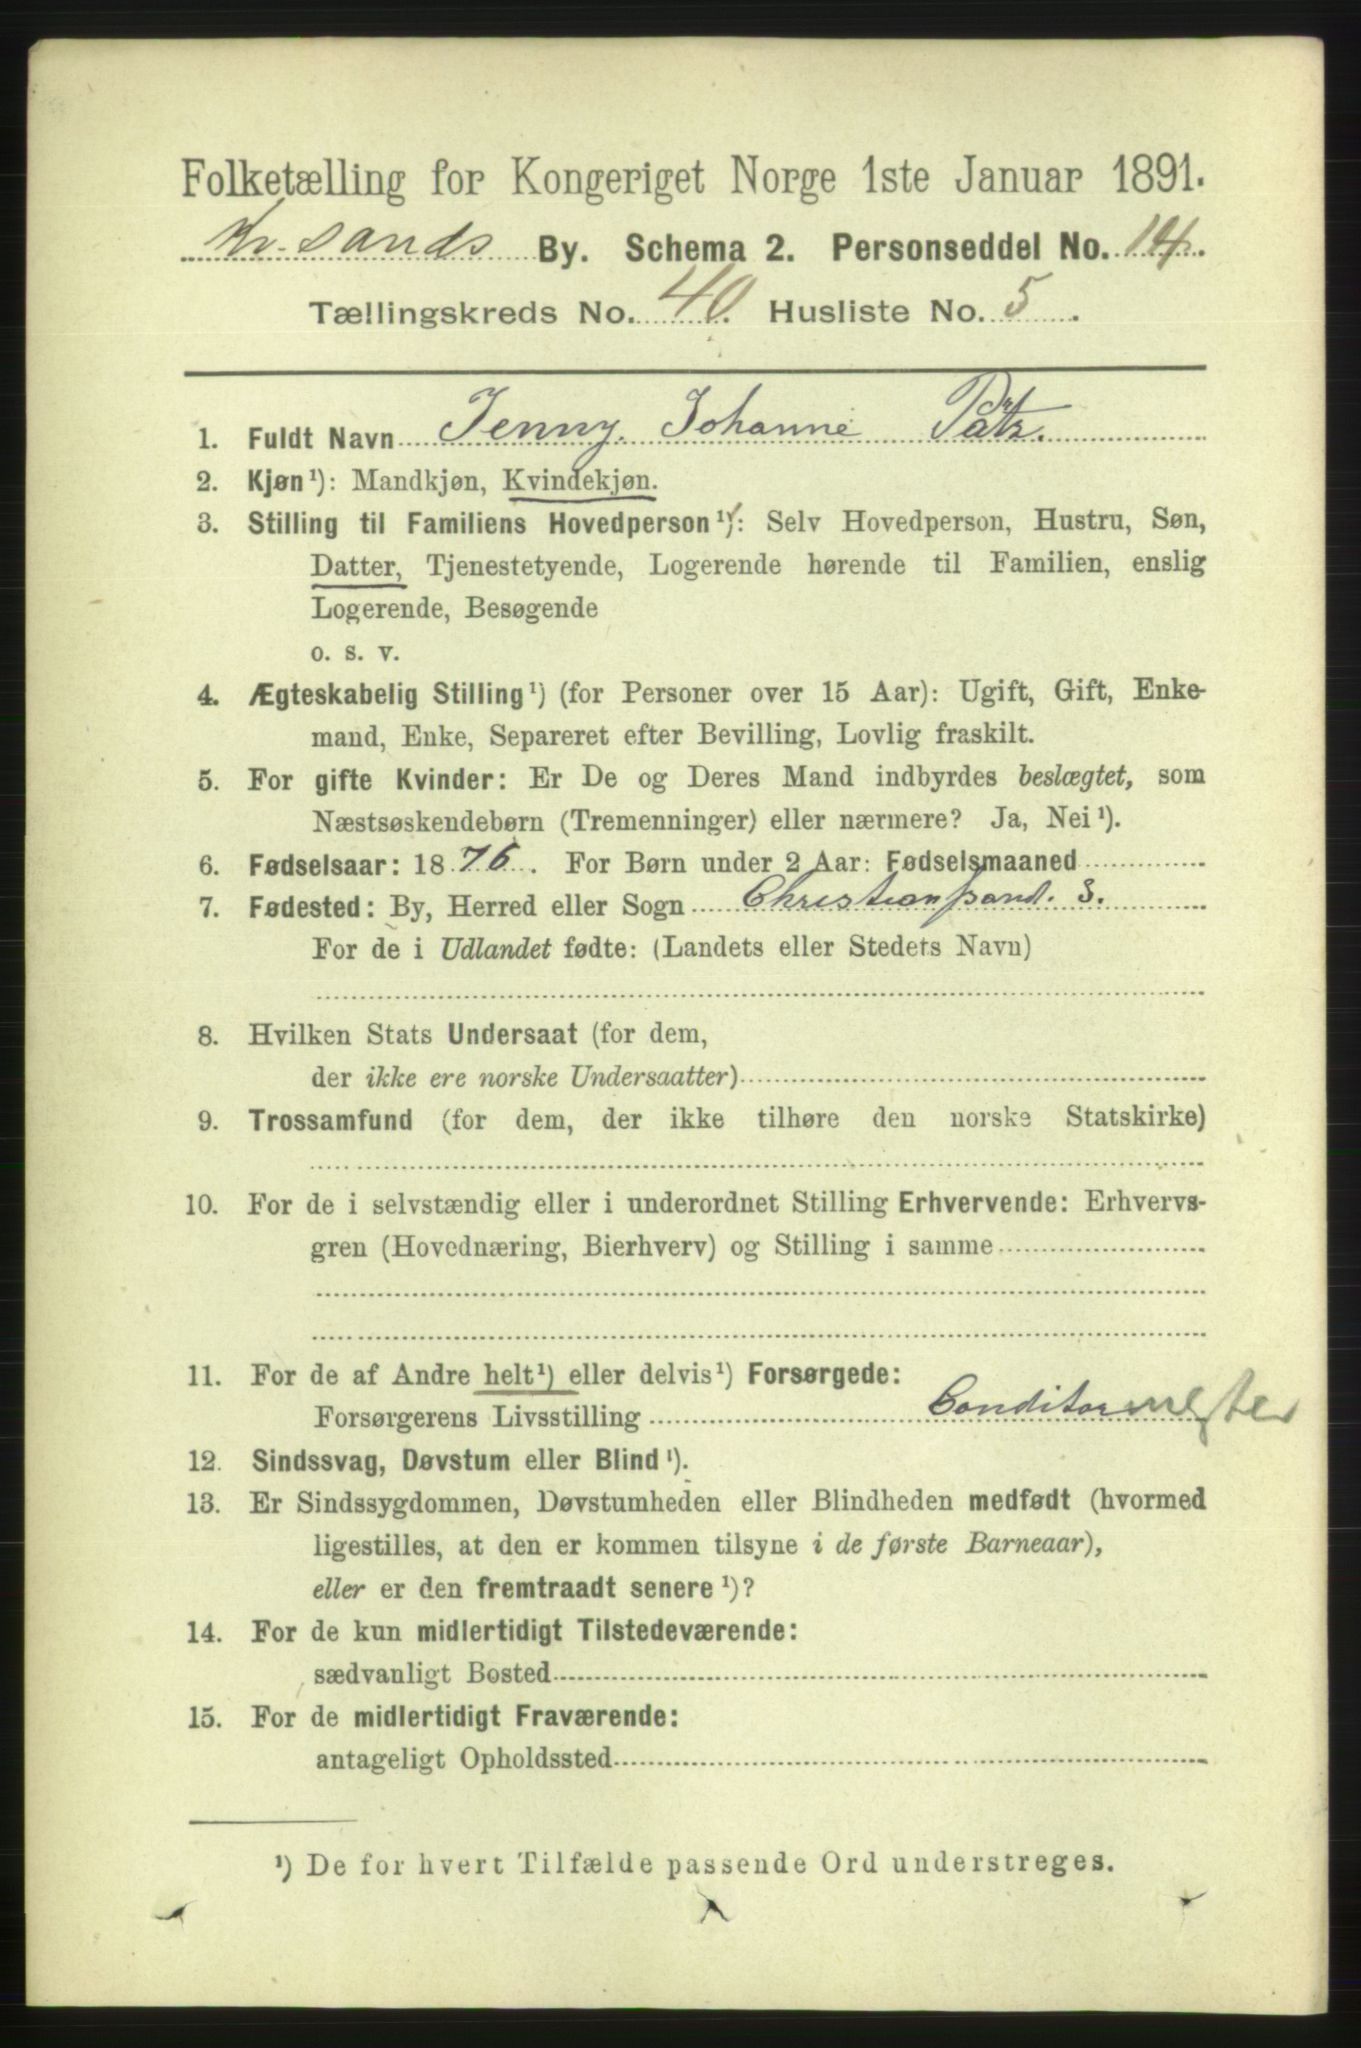 Folketælling for Kongeriget Norge 1ste Januar 1891.
Kr.sands By. Schema 2. Personseddel No. 14.
Tællingskreds No. 40. Husliste No. 5.
1. Fuldt Navn Jenny Johanne Pätz.
2. Kjøn¹): Mandkjøn, Kvindekjøn.
3. Stilling til Familiens Hovedperson¹): Selv Hovedperson, Hustru, Søn,
Datter, Tjenestetyende, Logerende hørende til Familien, enslig
Logerende, Besøgende
o. s. v.
4. Ægteskabelig Stilling¹) (for Personer over 15 Aar): Ugift, Gift, Enke-
mand, Enke, Separeret efter Bevilling, Lovlig fraskilt.
5. For gifte Kvinder: Er De og Deres Mand indbyrdes beslægtet, som
Næstsøskendebørn (Tremenninger) eller nærmere? Ja, Nei¹).
6. Fødselsaar: 1876. For Børn under 2 Aar: Fødselsmaaned
7. Fødested: By, Herred eller Sogn Christianssand. S.
For de i Udlandet fødte: (Landets eller Stedets Navn)
8. Hvilken Stats Undersaat (for dem,
der ikke ere norske Undersaatter)
9. Trossamfund (for dem, der ikke tilhøre den norske Statskirke)
10. For de i selvstændig eller i underordnet Stilling Erhvervende: Erhvervs-
gren (Hovednæring, Bierhverv) og Stilling i samme
11. For de af Andre helt¹) eller delvis¹) Forsørgede:
Forsørgerens Livsstilling Conditormester
12. Sindssvag, Døvstum eller Blind¹).
13. Er Sindssygdommen, Døvstumheden eller Blindheden medfødt (hvormed
ligestilles, at den er kommen tilsyne i de første Barneaar),
eller er den fremtraadt senere¹)?
14. For de kun midlertidigt Tilstedeværende:
sædvanligt Bosted
15. For de midlertidigt Fraværende:
antageligt Opholdssted
¹) De for hvert Tilfælde passende Ord understreges.